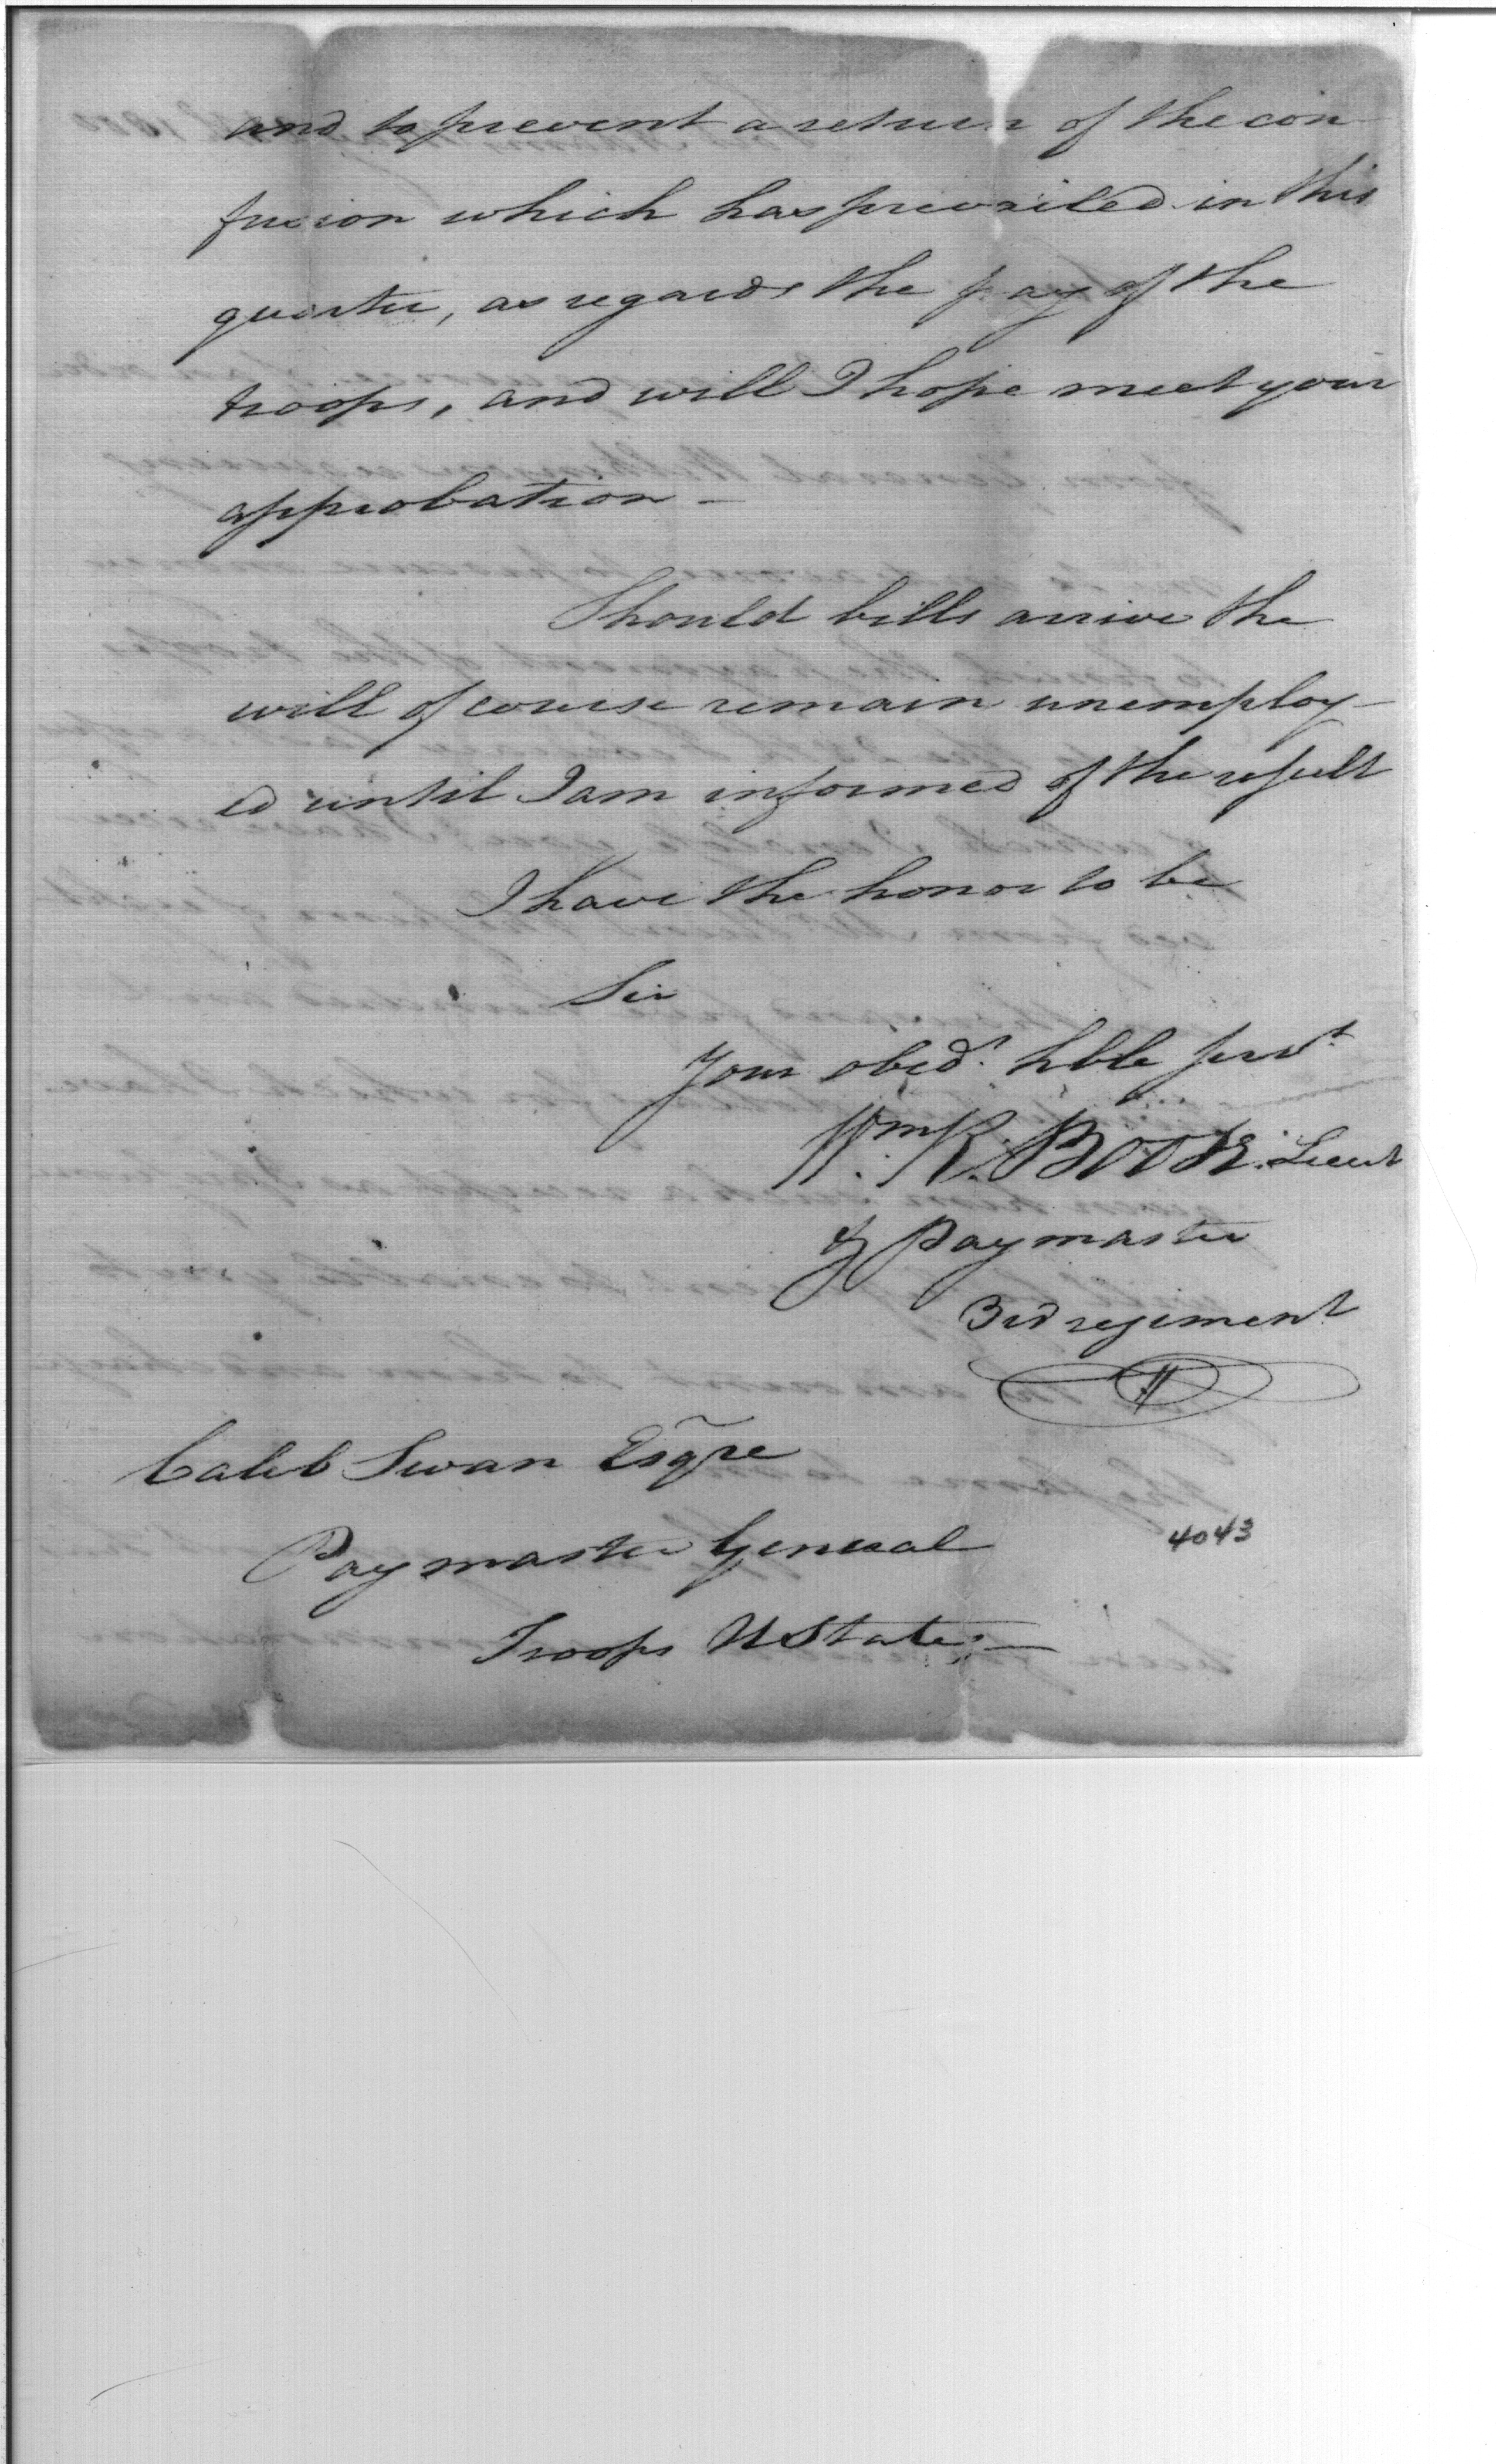 and to prevent a return of the con
fusion which has prevailed in this
quarter, as regards the pay of the
troops, and will I hope meet your
approbation –
Should bills arrive the
will of course remain unemploy–
ed until I am informed of the result
I have the honor to be
Sir
Your obedt. hble servt
Wm. R. Boote. Lieut
& Paymaster
3rd regiment
Caleb Swan Esqre
Paymaster General
Troops UStates –
4043